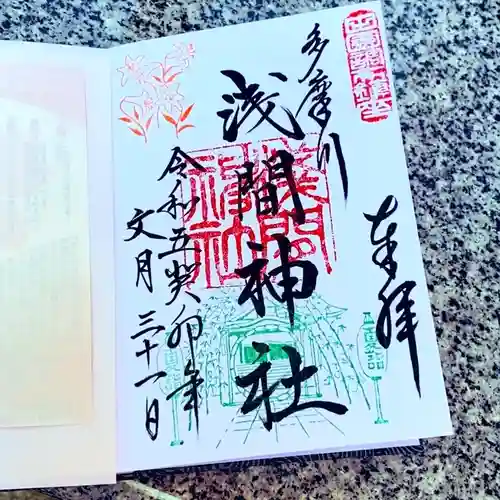 奉拝
多摩川
浅間神社
令和五癸卯年
文月三十一日
浅間神社
夏詣
夏詣